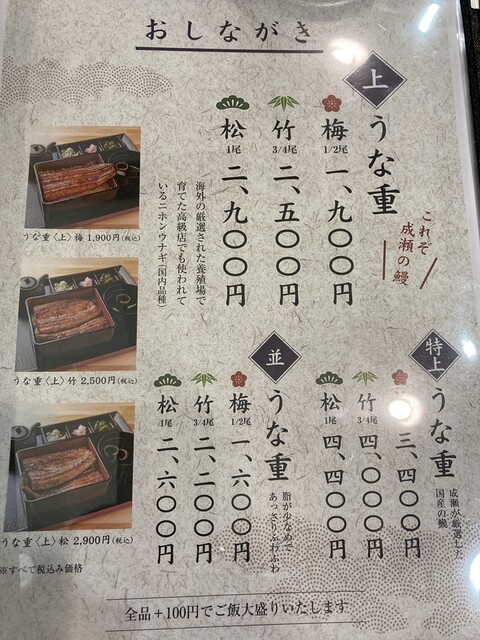 おしながき
上
うな重
これぞ
成瀬の鰻
梅
1/2尾
一、九〇〇円
竹
3/4尾
二、五〇〇円
松
1尾
二、九〇〇円
海外の厳選された養殖場で
育てた高級店でも使われて
いるニホンウナギ(国内品種)
うな重〈上〉梅 1,900円(税込)
うな重〈上〉竹 2,500円(税込)
うな重〈上〉松 2,900円(税込)
※すべて税込み価格
特上
うな重
成瀬が厳選した
国産の鰻
三、四〇〇円
竹
3/4尾
四、〇〇〇円
松
1尾
四、四〇〇円
並
うな重
脂が少なめで
あっさりふわふわ
梅
1/2尾
一、六〇〇円
竹
3/4尾
二、二〇〇円
松
1尾
二、六〇〇円
全品+100円でご飯大盛りいたします